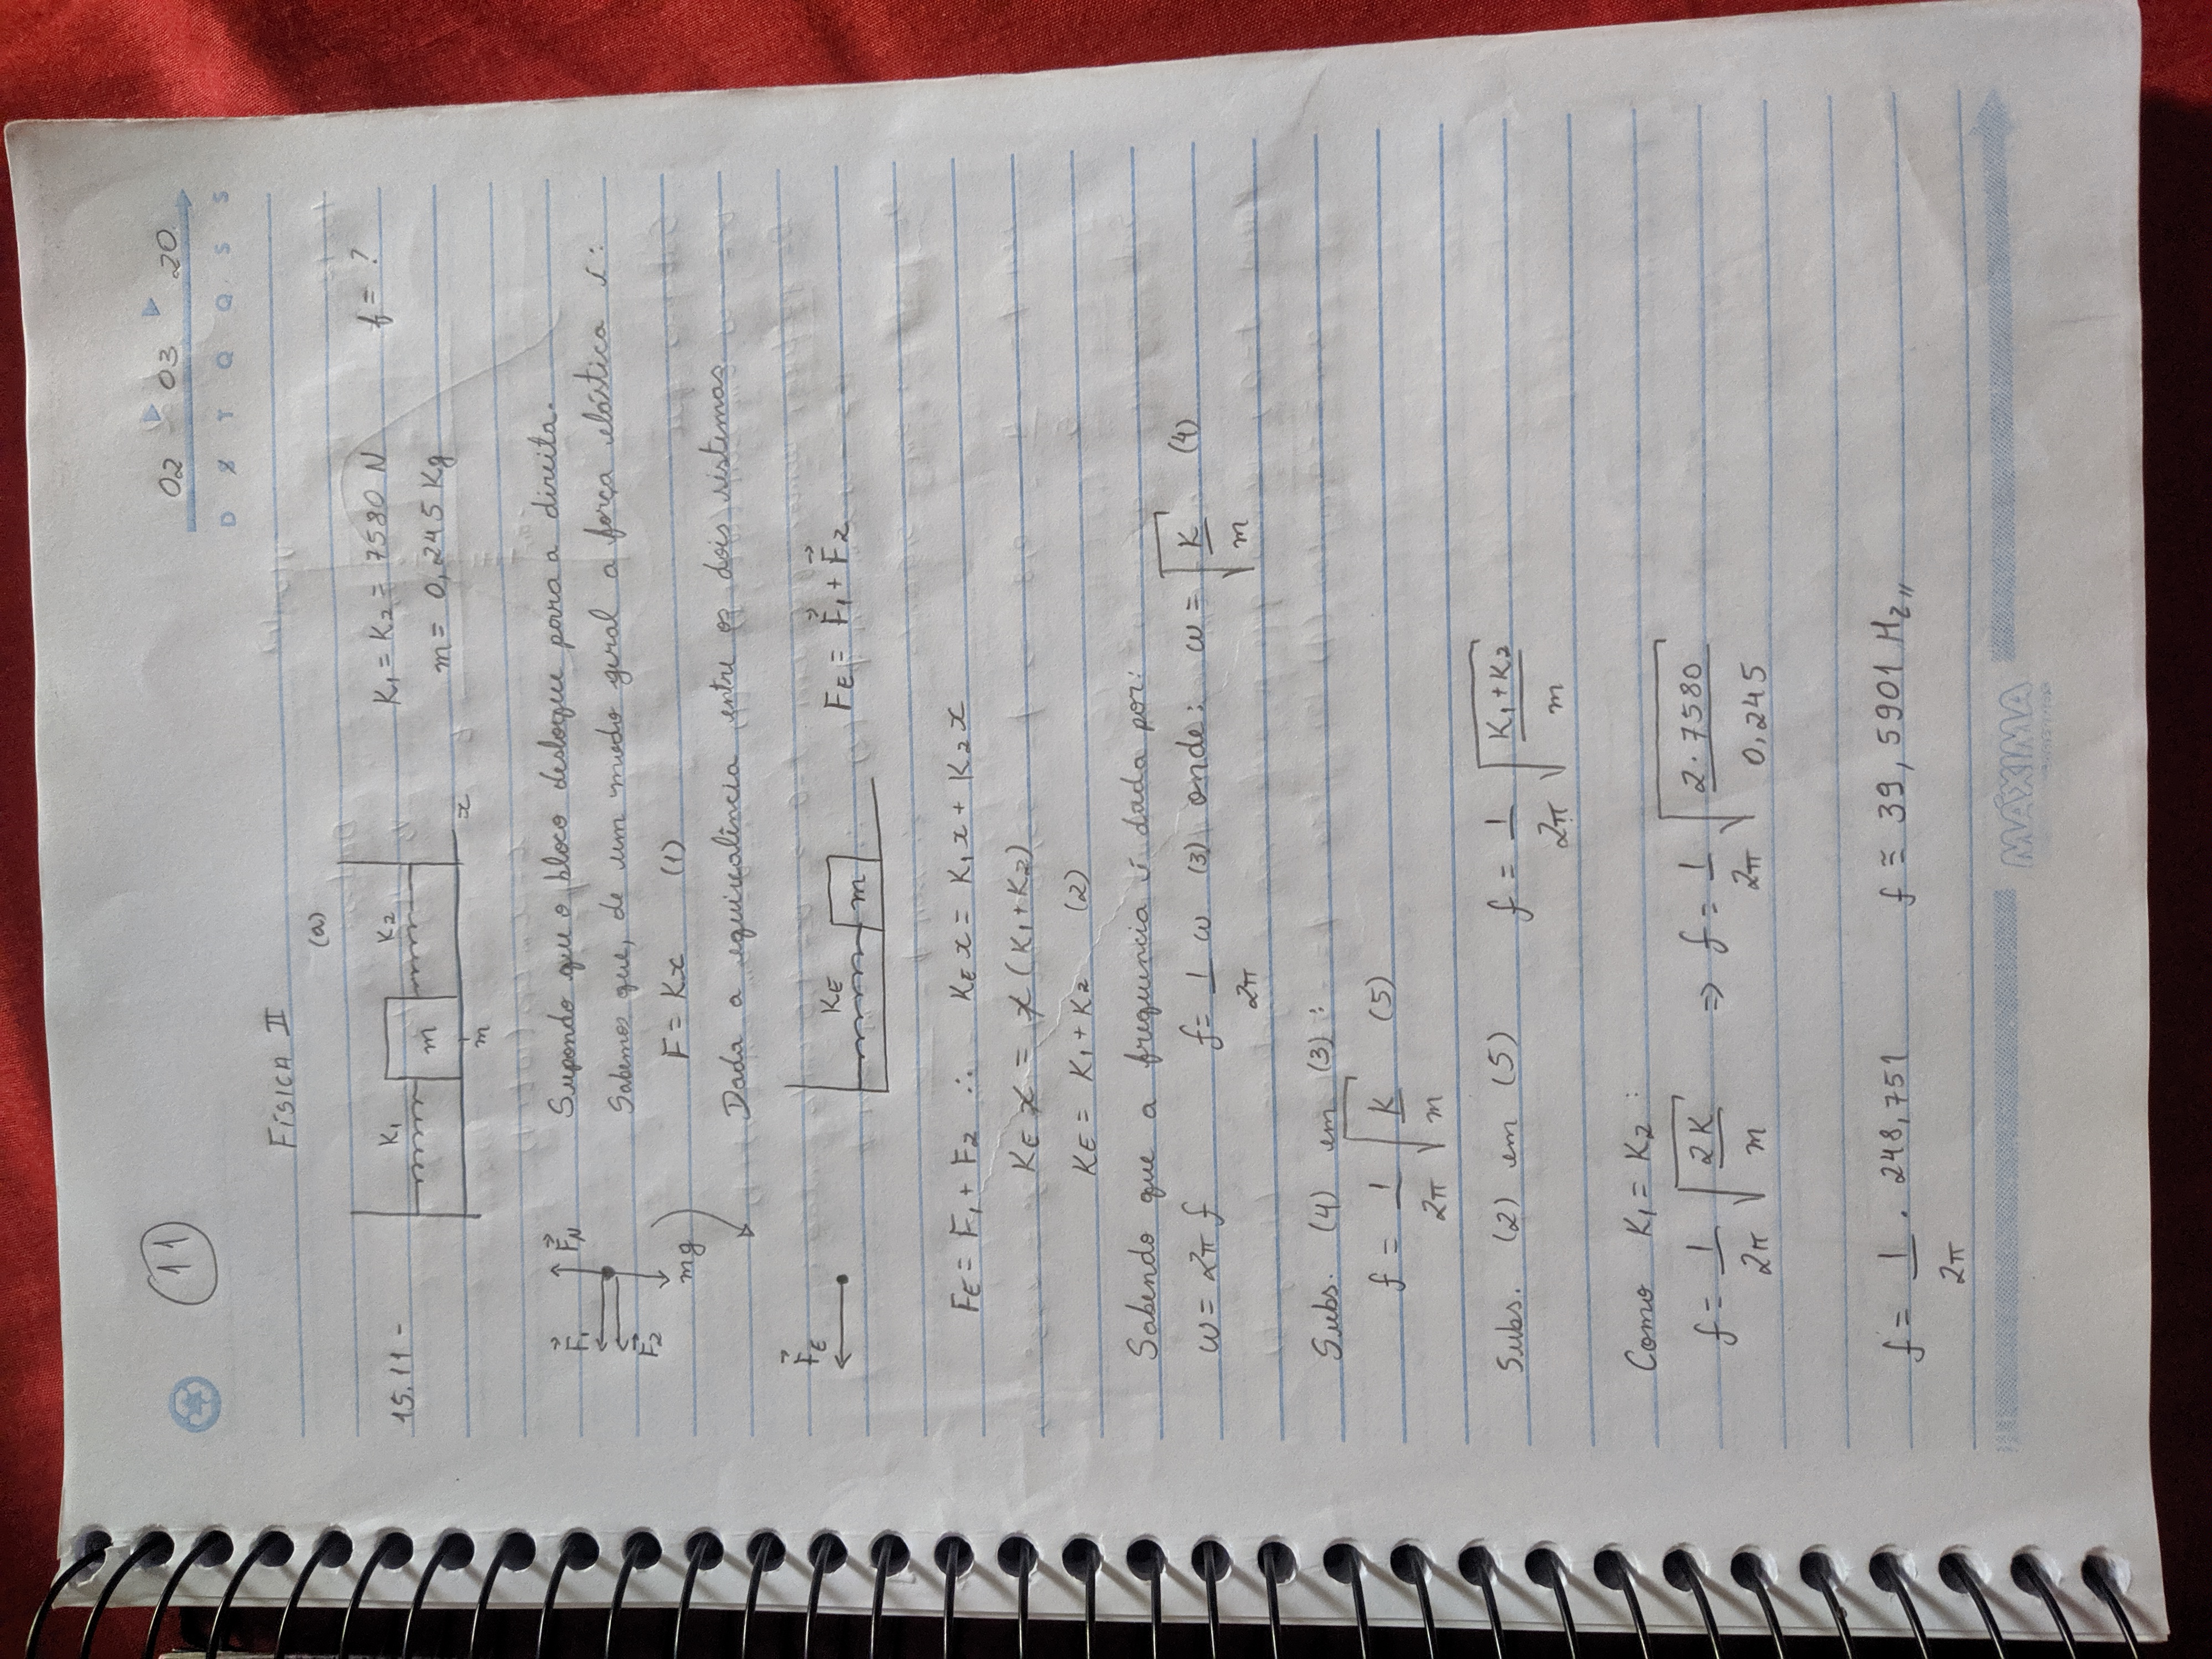 11
02 03 20
D S T Q Q S S
FÍSICA II
(a)
15.11 -
K₁ K₂
m
x
m
K₁ = K₂ = 7580 N f = ?
m = 0,245 Kg
F₁ F_N
F₂
mg
Supondo que o bloco desloque para a direita.
Sabemos que, de um modo geral a força elástica é:
F = Kx (1)
Dada a equivalência entre os dois sistemas
F_E
K_E
m
F_E = F₁ + F₂
F_E = F₁ + F₂ ∴ K_E x = K₁x + K₂x
K_E x = x (K₁+K₂)
K_E = K₁ + K₂ (2)
Sabendo que a frequencia é dada por:
ω = 2π f f = 1/2π ω (3) onde: ω = √(K/m) (4)
Subs. (4) em (3):
f = 1/2π √(K/m) (5)
Subs. (2) em (5) f = 1/2π √((K₁+K₂)/m)
Como K₁ = K₂:
f = 1/2π √(2K/m) ⇒ f = 1/2π √(2.7580/0,245)
f = 1/2π . 248,751 f ≅ 39,5901 Hz,,
MÁXIMA